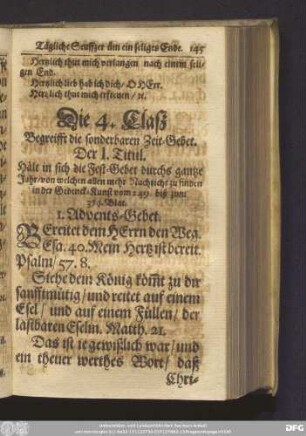 Tägliche Seuffzer um ein seliges Ende. 145
Hertzlich thut mich verlangen nach einem seli-
gen End.
Hertzlich lieb hab ich dich / O HErr.
Hertzlich thut mich erfreuen / ꝛc.
Die 4. Claß
Begreifft die sonderbaren Zeit-Gebet.
Der I. Titul.
Hält in sich die Fest-Gebet durchs gantze
Jahr / von welchen allen mehr Nachricht zu finden
in der Gedenck-Kunst vom 249. biß zum
Blat.
1. Advents-Gebet.
BEreitet dem HErrn den Weg.
Esa. 40. Mein Hertz ist bereit.
Psalm / 57. 8.
Siehe dein König kom̃t zu dir
sanfftmütig / und reitet auf einem
Esel / und auf einem Füllen / der
lastbaren Eselin. Matth. 21.
Das ist je gewißlich war / und
ein theuer werthes Wort / daß
Chri-